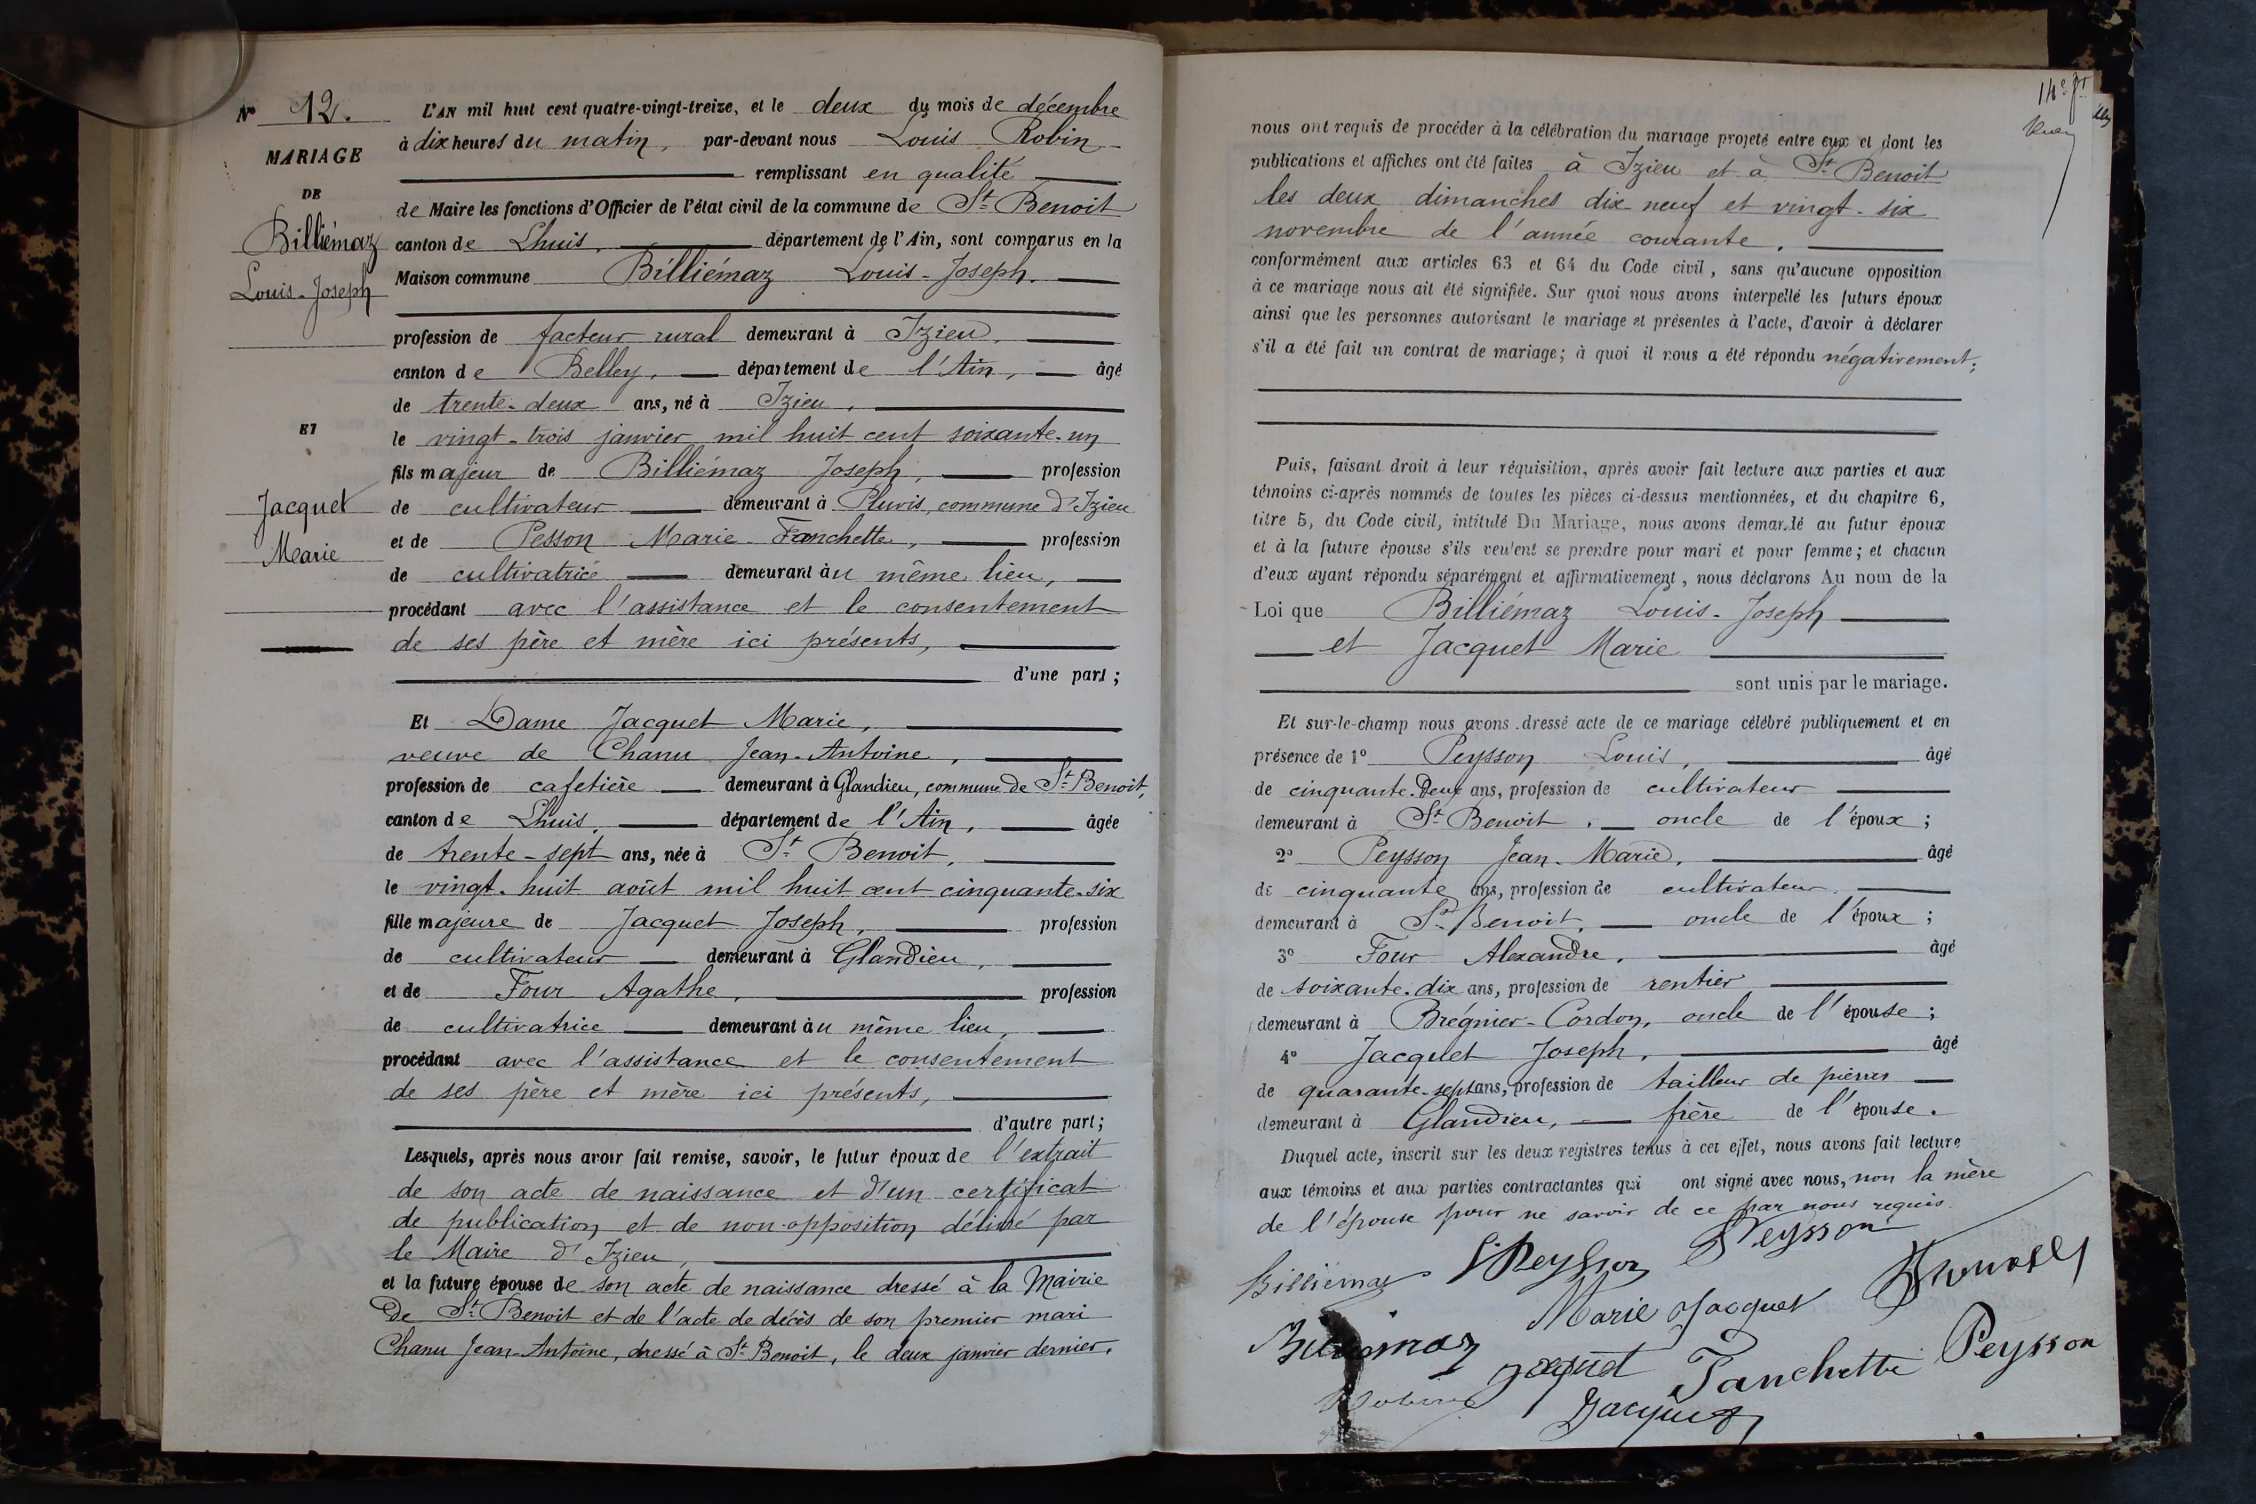 N° 12.
MARIAGE
DE
Billiémaz
Louis-Joseph
ET
Jacquet
Marie
L'AN mil huit cent quatre-vingt-treize, et le deux du mois de décembre
à dix heures du matin, par-devant nous Louis Robin
remplissant en qualité
de Maire les fonctions d'Officier de l'état civil de la commune de St Benoit
canton de Lhuis, département de l'Ain, sont comparus en la
Maison commune Billiémaz Louis-Joseph.
profession de facteur rural demeurant à Izieu,
canton de Belley, département de l'Ain, âgé
de trente-deux ans, né à Izieu,
le vingt-trois janvier mil huit cent soixante-un
fils majeur de Billiémaz Joseph, profession
de cultivateur demeurant à Pluvis, commune d'Izieu
et de Pesson Marie Fanchette, profession
de cultivatrice demeurant au même lieu,
procédant avec l'assistance et le consentement
de ses père et mère ici présents,
d'une part;
Et Dame Jacquet Marie,
veuve de Chanu Jean-Antoine,
profession de cafetière demeurant à Glandieu, commune de St Benoit,
canton de Lhuis, département de l'Ain, âgée
de trente-sept ans, née à St Benoit,
le vingt-huit août mil huit cent cinquante-six
fille majeure de Jacquet Joseph, profession
de cultivateur demeurant à Glandieu,
et de Four Agathe, profession
de cultivatrice demeurant au même lieu,
procédant avec l'assistance et le consentement
de ses père et mère ici présents,
d'autre part;
Lesquels, après nous avoir fait remise, savoir, le futur époux de l'extrait
de son acte de naissance et d'un certificat
de publication et de non-opposition délivré par
le Maire d'Izieu,
et la future épouse de son acte de naissance dressé à la Mairie
de St Benoit et de l'acte de décès de son premier mari
Chanu Jean-Antoine, dressé à St Benoit, le deux janvier dernier.
nous ont requis de procéder à la célébration du mariage projeté entre eux et dont les
publications et affiches ont été faites à Izieu et à St Benoit
les deux dimanches dix-neuf et vingt-six
novembre de l'année courante.
conformément aux articles 63 et 64 du Code civil, sans qu'aucune opposition
à ce mariage nous ait été signifiée. Sur quoi nous avons interpellé les futurs époux
ainsi que les personnes autorisant le mariage et présentes à l'acte, d'avoir à déclarer
s'il a été fait un contrat de mariage; à quoi il nous a été répondu négativement;
Puis, faisant droit à leur réquisition, après avoir fait lecture aux parties et aux
témoins ci-après nommés de toutes les pièces ci-dessus mentionnées, et du chapitre 6,
titre 5, du Code civil, intitulé Du Mariage, nous avons demandé au futur époux
et à la future épouse s'ils veulent se prendre pour mari et pour femme; et chacun
d'eux ayant répondu séparément et affirmativement, nous déclarons Au nom de la
Loi que Billiémaz Louis-Joseph
et Jacquet Marie
sont unis par le mariage.
Et sur-le-champ nous avons dressé acte de ce mariage célébré publiquement et en
présence de 1° Peysson Louis, âgé
de cinquante-deux ans, profession de cultivateur
demeurant à St Benoit, oncle de l'époux;
2° Peysson Jean-Marie, âgé
de cinquante ans, profession de cultivateur
demeurant à St Benoit, oncle de l'époux;
3° Four Alexandre, âgé
de soixante-dix ans, profession de rentier
demeurant à Brégnier-Cordon, oncle de l'épouse;
4° Jacquet Joseph, âgé
de quarante-sept ans, profession de tailleur de pierres
demeurant à Glandieu, frère de l'épouse.
Duquel acte, inscrit sur les deux registres tenus à cet effet, nous avons fait lecture
aux témoins et aux parties contractantes qui ont signé avec nous, non la mère
de l'épouse pour ne savoir de ce par nous requis.
Billiemaz L Peysson Peysson
Marie Jacquet
Billiemaz Jaqut Fanchette Peysson
Robin Jacquet